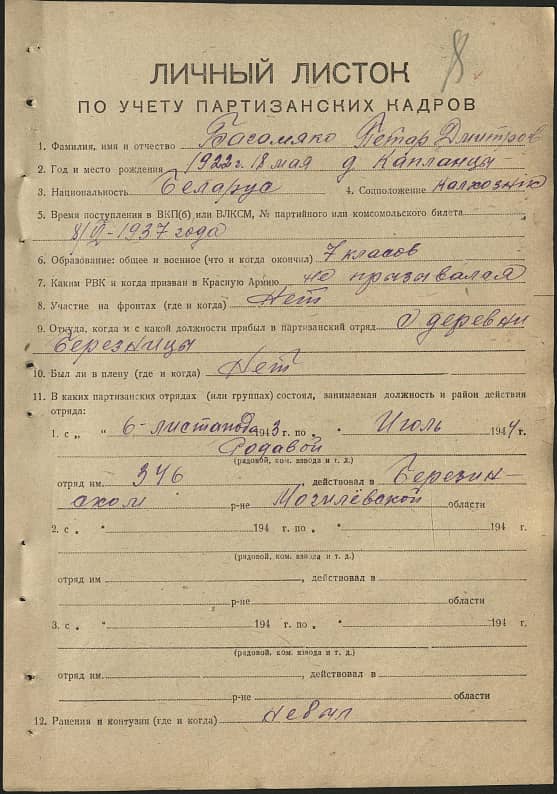 8
ЛИЧНЫЙ ЛИСТОК
ПО УЧЕТУ ПАРТИЗАНСКИХ КАДРОВ
1. Фамилия, имя и отчество Басомяко Петар Дмитров
2. Год и место рождения 1922 г. 18 мая д Капланцы
3. Национальность Беларус 4. Соцположение Калхозник
5. Время поступления в ВКП(б), или ВЛКСМ, № партийного или комсомольского билета
8/VI-1937 года
6. Образование: общее и военное (что и когда окончил) 7 класов
7. Каким РВК и когда призван в Красную Армию не призывался
8. Участие на фронтах (где и когда) Нет
9. Откуда, когда и с какой должности прибыл в партизанский отряд С деревни
Березницы
10. Был ли в плену (где и когда) Нет
11. В каких партизанских отрядах (или группах) состоял, занимаемая должность и район действия
отряда:
1. с „ " 6-листапода 1943 г. по „ " Июль 1944 г.
Родавой
(рядовой, ком. взвода и т. д.)
отряд им. 346, действовал в Березин-
ском р-не Могилёвской области
2. с „ " 194 г. по „ " 194 г.
(рядовой, ком. взвода и т. д.)
отряд им., действовал в
р-не области
3. с „ " 194 г. по „ " 194 г.
(рядовой, ком. взвода и т. д.)
отряд им., действовал в
р-не области
12. Ранения и контузии (где и когда) небыл